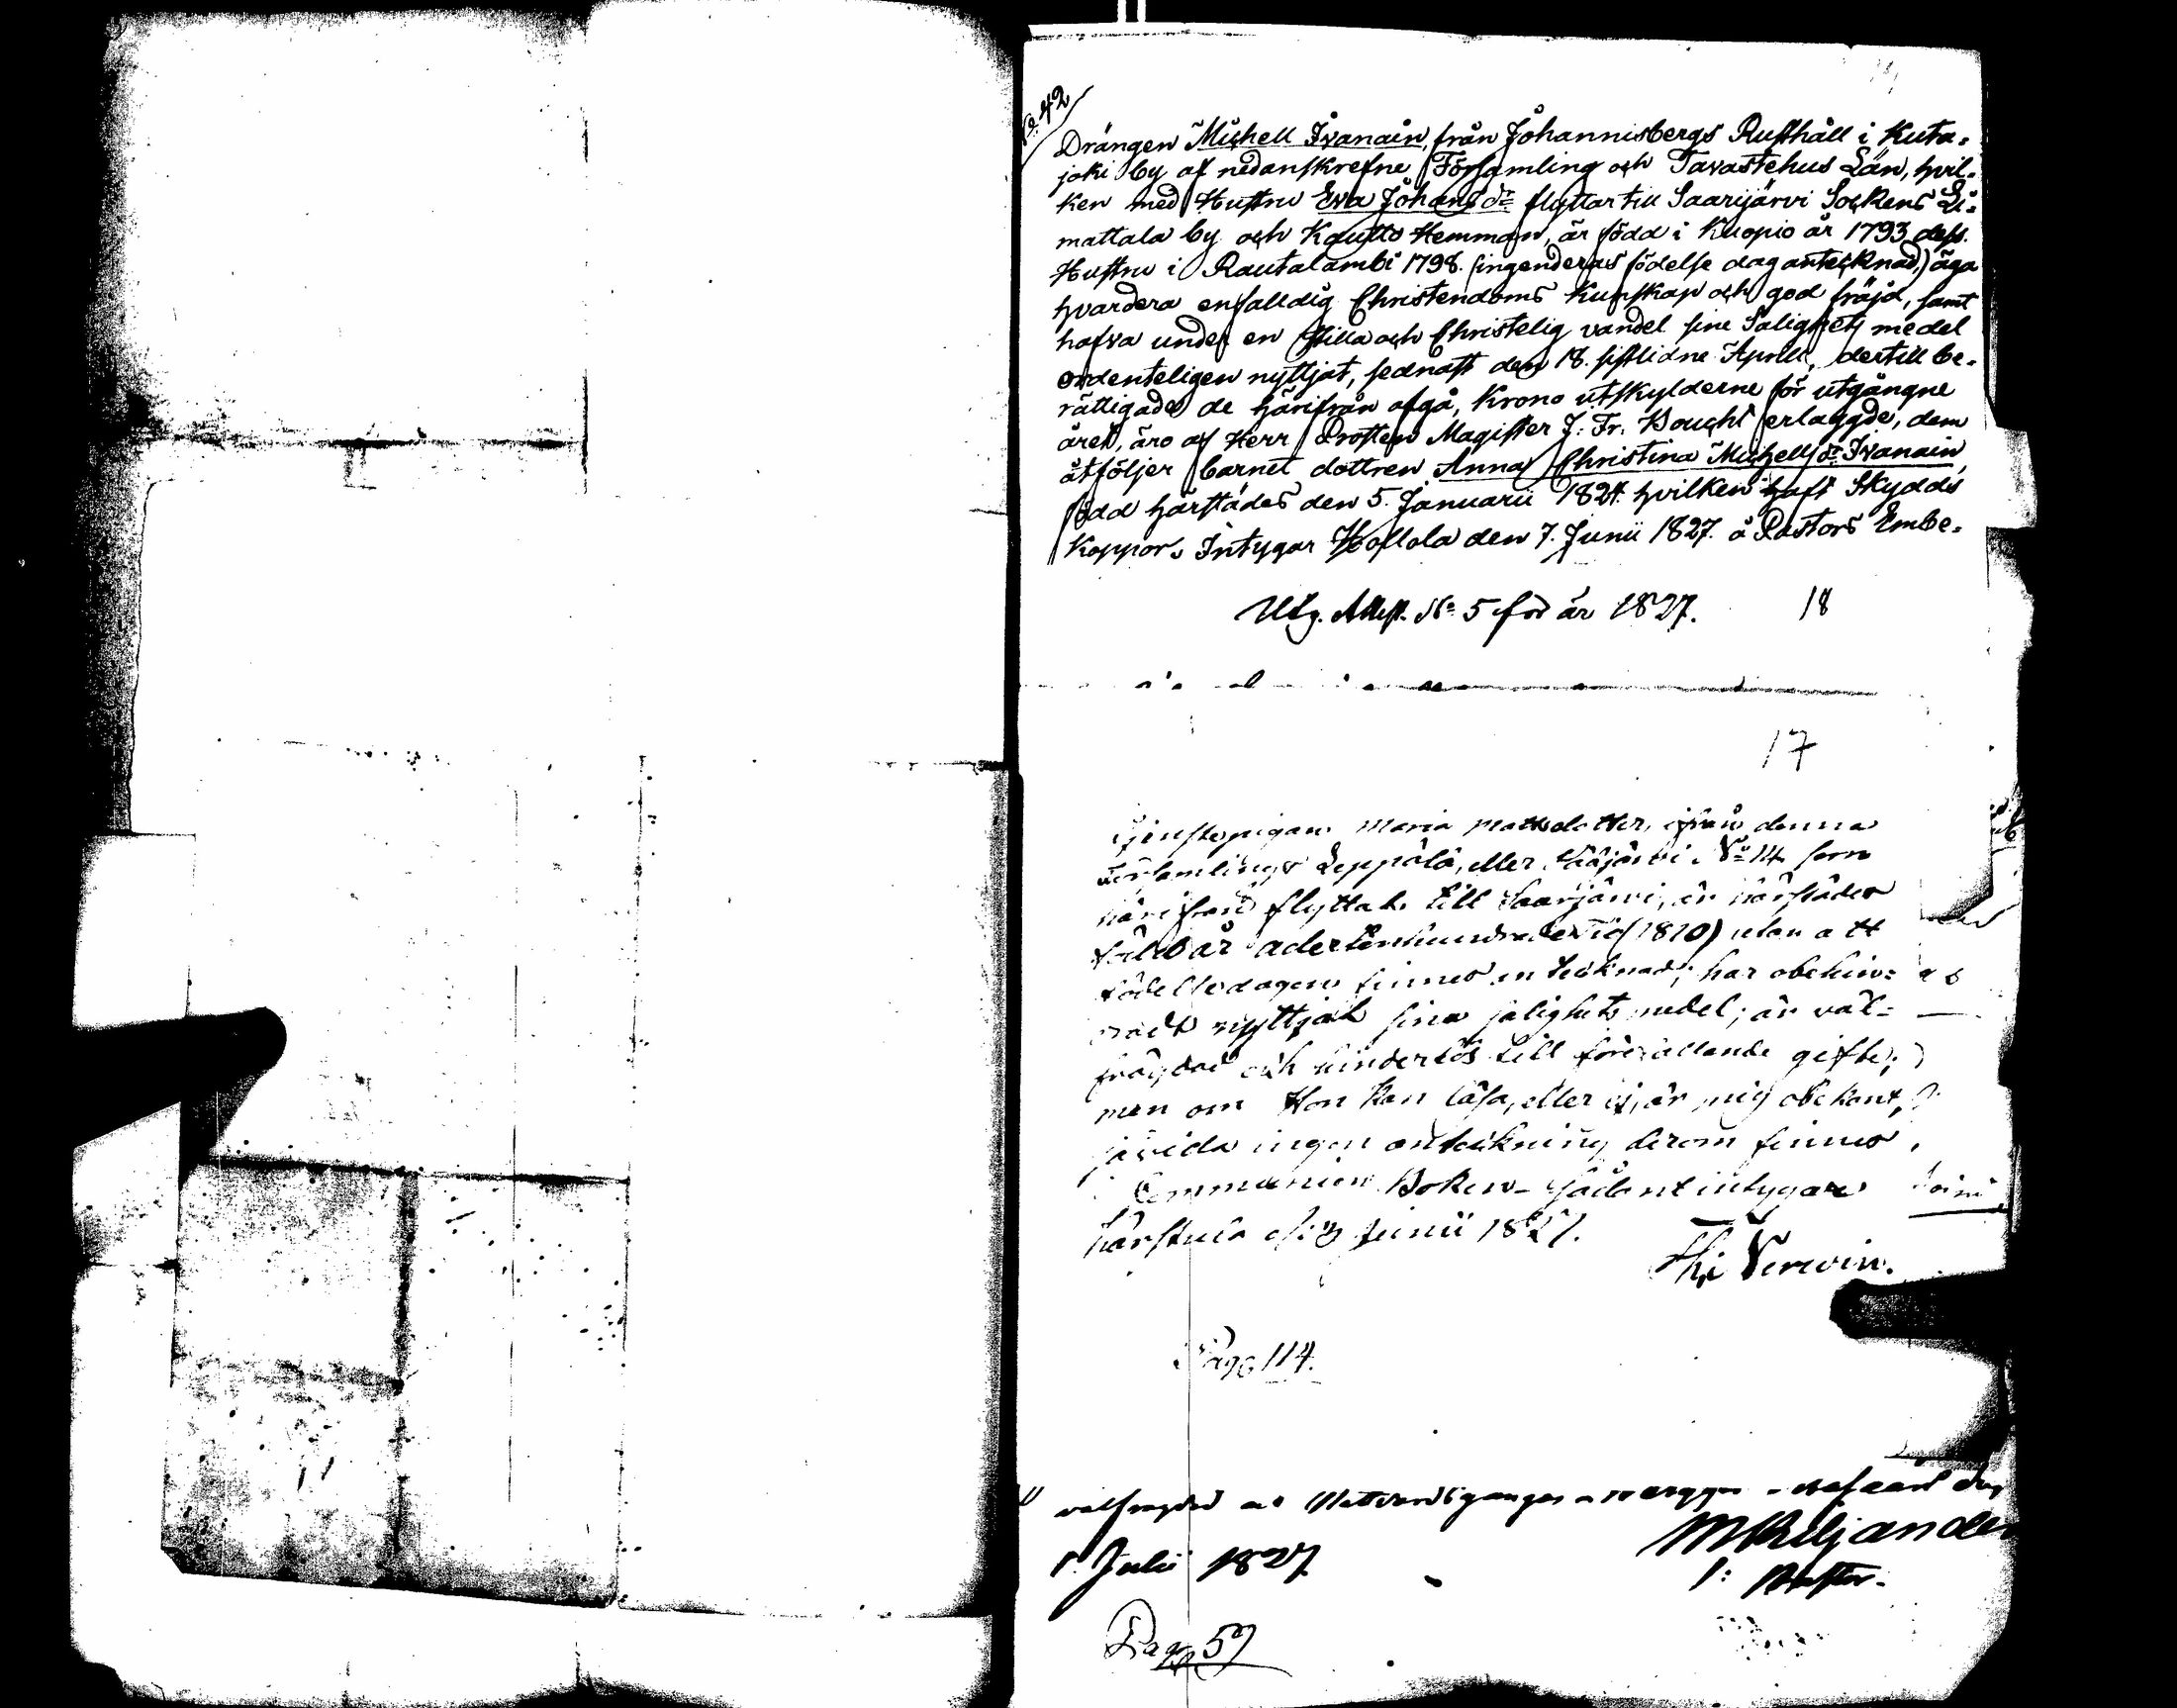 No 42
Drängen Michell Ivanain, från Johannisbergs Rusthåll i Kuta-
joki by af nedanskrefne Församling och Tavastehus Län, hvil-
ken med Hustru Eva Johansdr flyttar till Saarijärvi Sockens Li-
mattala by och Kautto Hemman, är född i Kuopio år 1793, dess
Hustru i Rautalambi 1798. (ingenderas födelse dag antecknad) äga
hvardera enfalldig Christendoms Kunskap och god fräjd, samt
hafva under en stilla och Christelig vandel sine Salighets medel
ordenteligen nyttjat, sednast den 18. sistlidne Aprill, dertill be-
rättigade de härifrån afgå, Krono utskylderne för utgångne
året, äro af Herr Prosten Magister J. Fr. Boucht erlaggde, dem
åtföljer barnet dottren Anna Christina Michellsdr Ivanain,
född härstädes den 5. Januarii 1824. hvilken haft Skydds
Koppor. Intygar Hollola den 7. Junii 1827. å Pastors Embe-
Utg. Attest. No 5 för år 1827. 18
17
Tjenstepigan Maria Mattsdotter, ifrån denna
Församlings Leppälä, eller Sääjärvi No 14 som
härifrån flyttat till Saarijärvi, är härstädes
född år adertonhundradetio (1810) utan att
födelsedagen finnes antecknad; har obehin-
radt nyttjat sina salighets medel; är väl-
frägdad och hinderlös till förefallande gifte;
men om Hon kan läsa, eller ej, är mig obekant,
såvida ingen anteckning derom finnes
Communion Boken - Sådant intygar
d. 3 Junii 1827.
Page 114.
välfrägdad
1. Julii 1827
M Kiljander
Pastor.
Pag 57